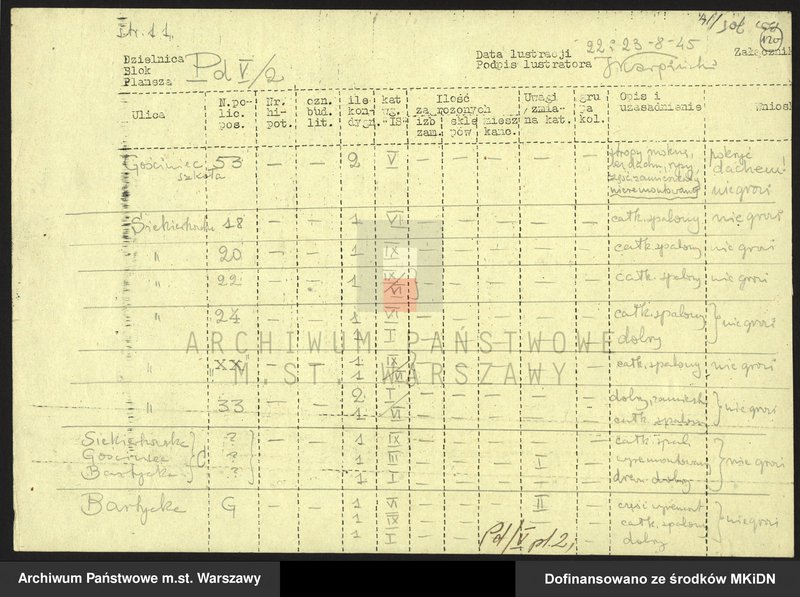 Str. 11
120
Dzielnica
Blok
Planeza
Pd V/2
Data lustracji 22 i 23-8-45
Podpis lustratora
Załącznik
Ulica
N.po-
lic.
pos.
Nr.
hi-
pot.
ozn.
bud.
lit.
ile
kon-
dygn.
kat
wg.
"IS"
Ilość
zagrożonych
izb
zam.
skle
pów
miesz
kanc.
Uwagi
/zmia-
na kat.
gru
pa
kol.
Opis i
uzasadnienie
Wniosk
Gościniec 53 — — 2 V — — — — — stropy mokre, pokryć
szkoła dachem!
niewyremontowana nie grozi
Siekierkowska 18 — — 1 VI — — — — — całk. spalony nie grozi
" 20 — — 1 IX — — — — — całk. spalony nie grozi
" 22 — — 1 IX/VI — — — — — całk. spalony nie grozi
" 24 — — 1 VI — — — — — całk. spalony nie grozi
1 I — — — — — dobry
" XX — — 1 IX — — — — — całk. spalony nie grozi
1 VI
" 33 — — 2 I — — — — — dobry, nie grozi
1 VI — — — — — całk. spalony
Siekierkowska ? — — 1 IX — — — — — całk. spal.
Gościniec C ? 1 III — — — I — wyremontowany nie grozi
Bartycka ? 1 I — — — — — drewn. dobry
Bartycka G — — 1 VI — — — II — część wyremont
1 IX — — — — całk. spalony nie grozi
1 I — dobry
Pd/V pl. 2,
ARCHIWUM PAŃSTWOWE
M.ST. WARSZAWY
Archiwum Państwowe m.st. Warszawy
Dofinansowano ze środków MKiDN